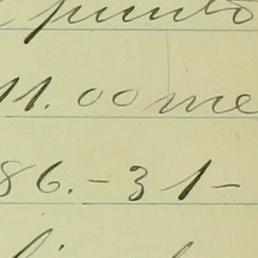 punto
11.00 me
86.-31-